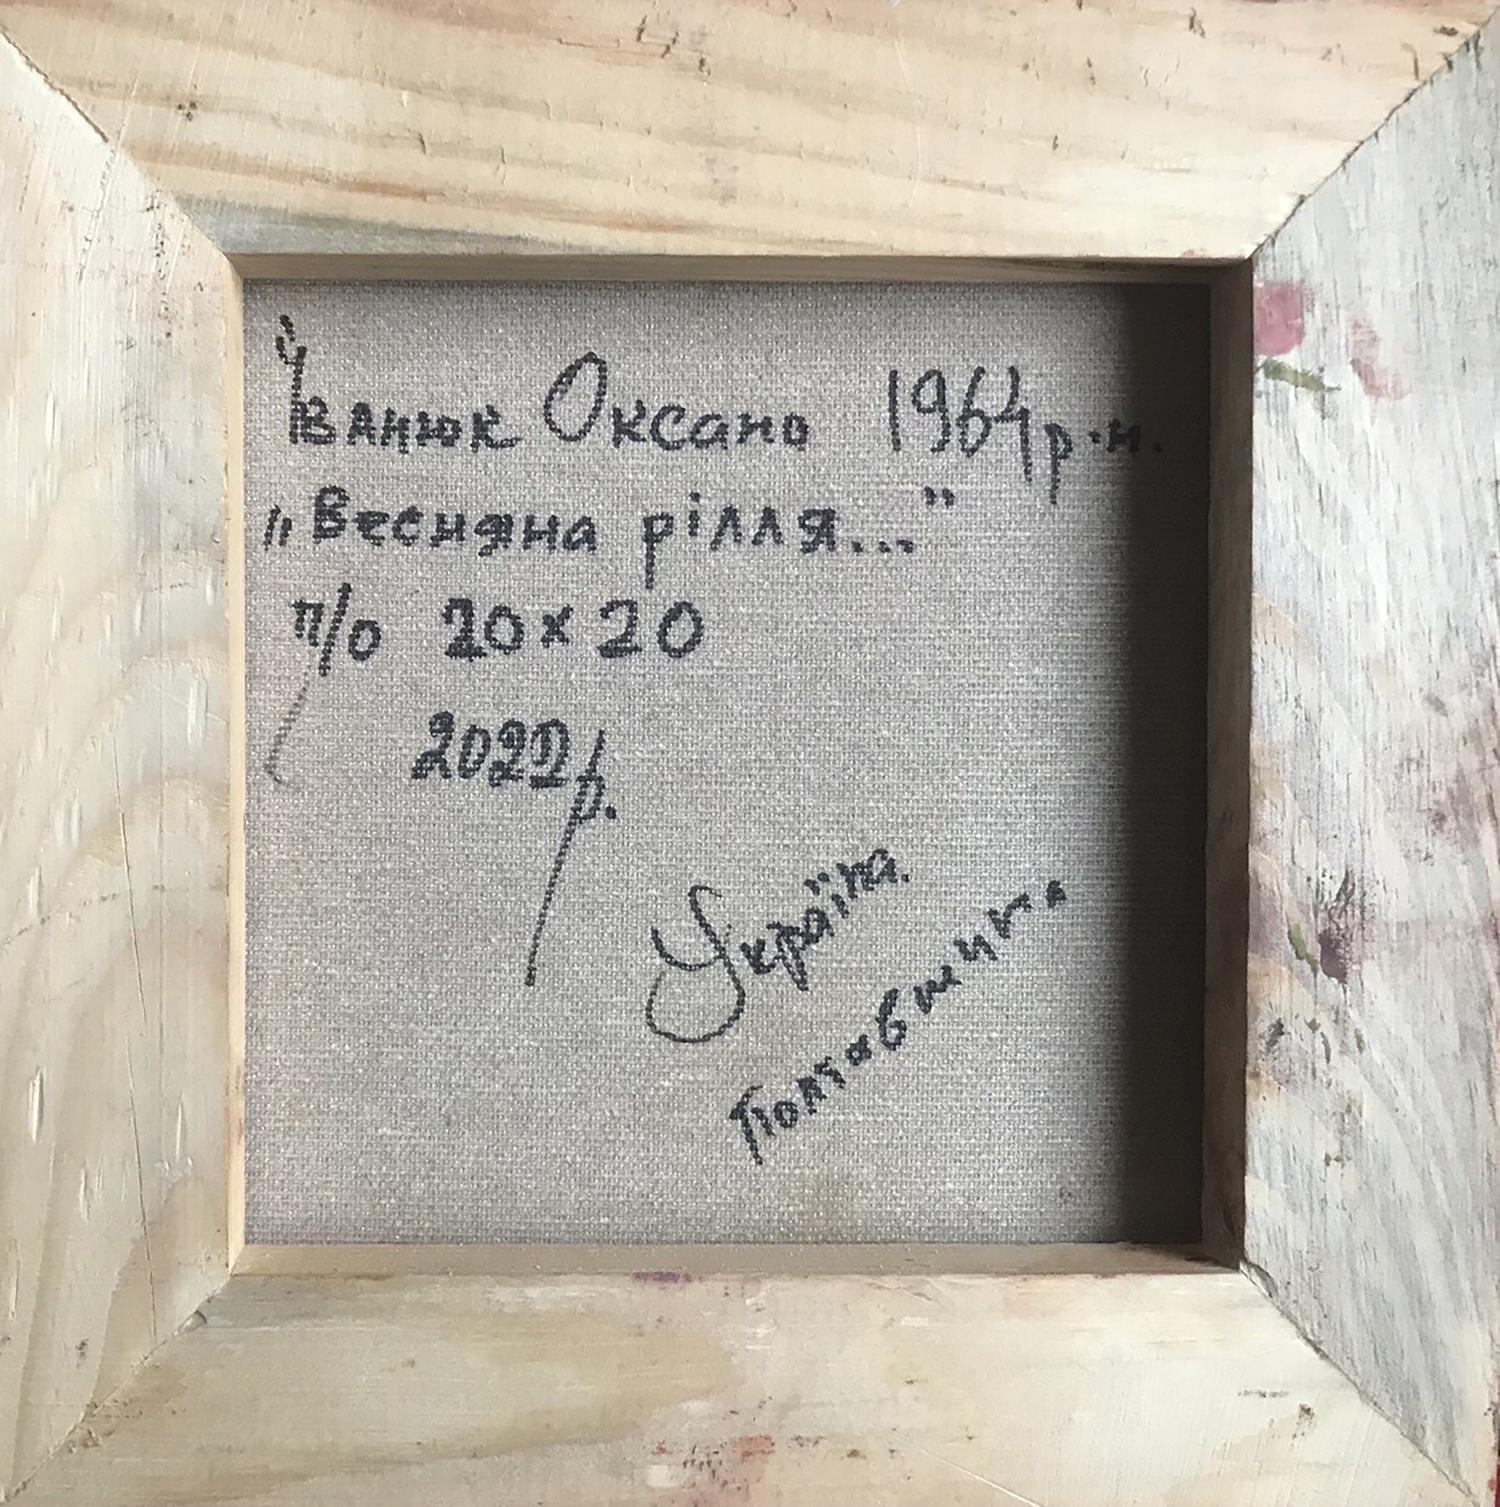 Іванюк Оксана 1964 р.н.
„Весняна рілля..."
п/о 20×20
2022 р.
Україна.
Полтавщина